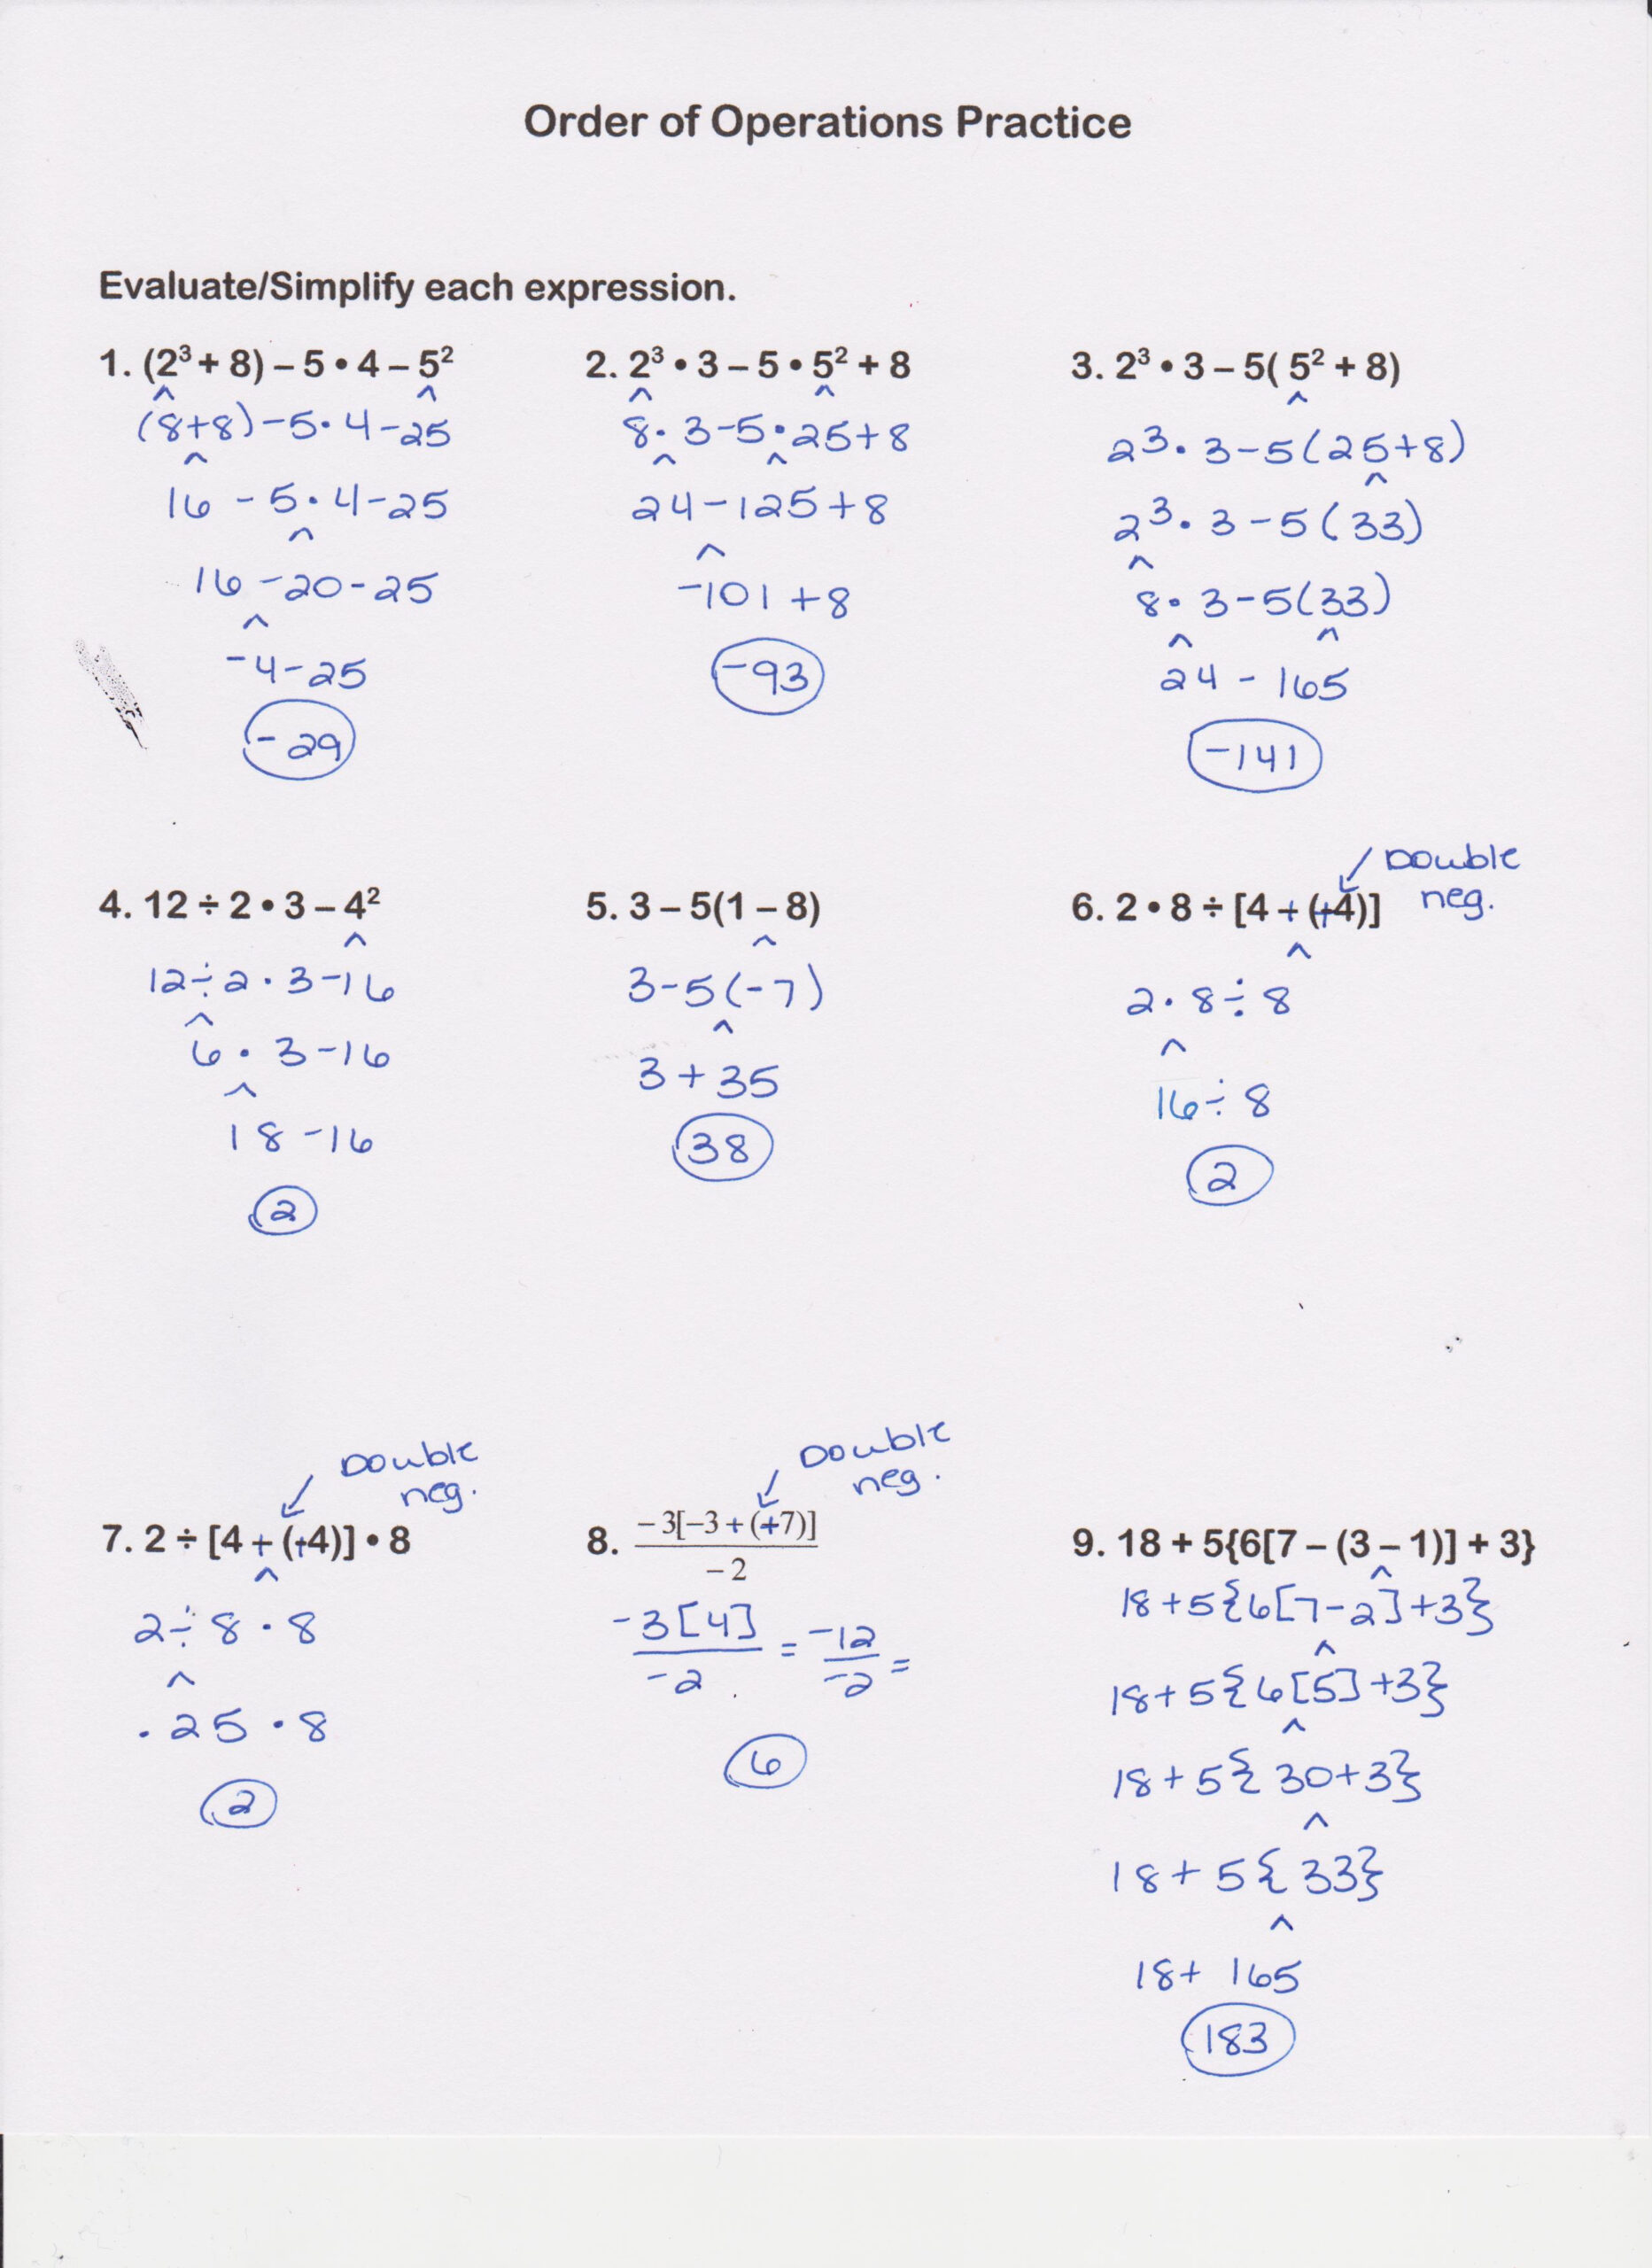 Order of Operations Practice
Evaluate/Simplify each expression.
1. (2³ + 8) – 5 • 4 – 5²
(8+8)-5·4-25
16 - 5·4-25
16 -20-25
-4-25
-29
2. 2³ • 3 – 5 • 5² + 8
8·3-5·25+8
24-125+8
-101+8
-93
3. 2³ • 3 – 5( 5² + 8)
2³·3-5(25+8)
2³·3-5(33)
8·3-5(33)
24 - 165
-141
4. 12 ÷ 2 • 3 – 4²
12÷2·3-16
6·3-16
18-16
2
5. 3 – 5(1 – 8)
3-5(-7)
3+35
38
Double
neg.
6. 2 • 8 ÷ [4 + (+4)]
2·8÷8
16÷8
2
Double
neg.
7. 2 ÷ [4 + (+4)] • 8
2÷8·8
.25·8
2
Double
neg.
8. – 3[–3 + (+7)]
– 2
-3[4] = -12 =
-2 -2
6
9. 18 + 5{6[7 – (3 – 1)] + 3}
18+5{6[7-2]+3}
18+5{6[5]+3}
18+5{30+3}
18+5{33}
18+ 165
183